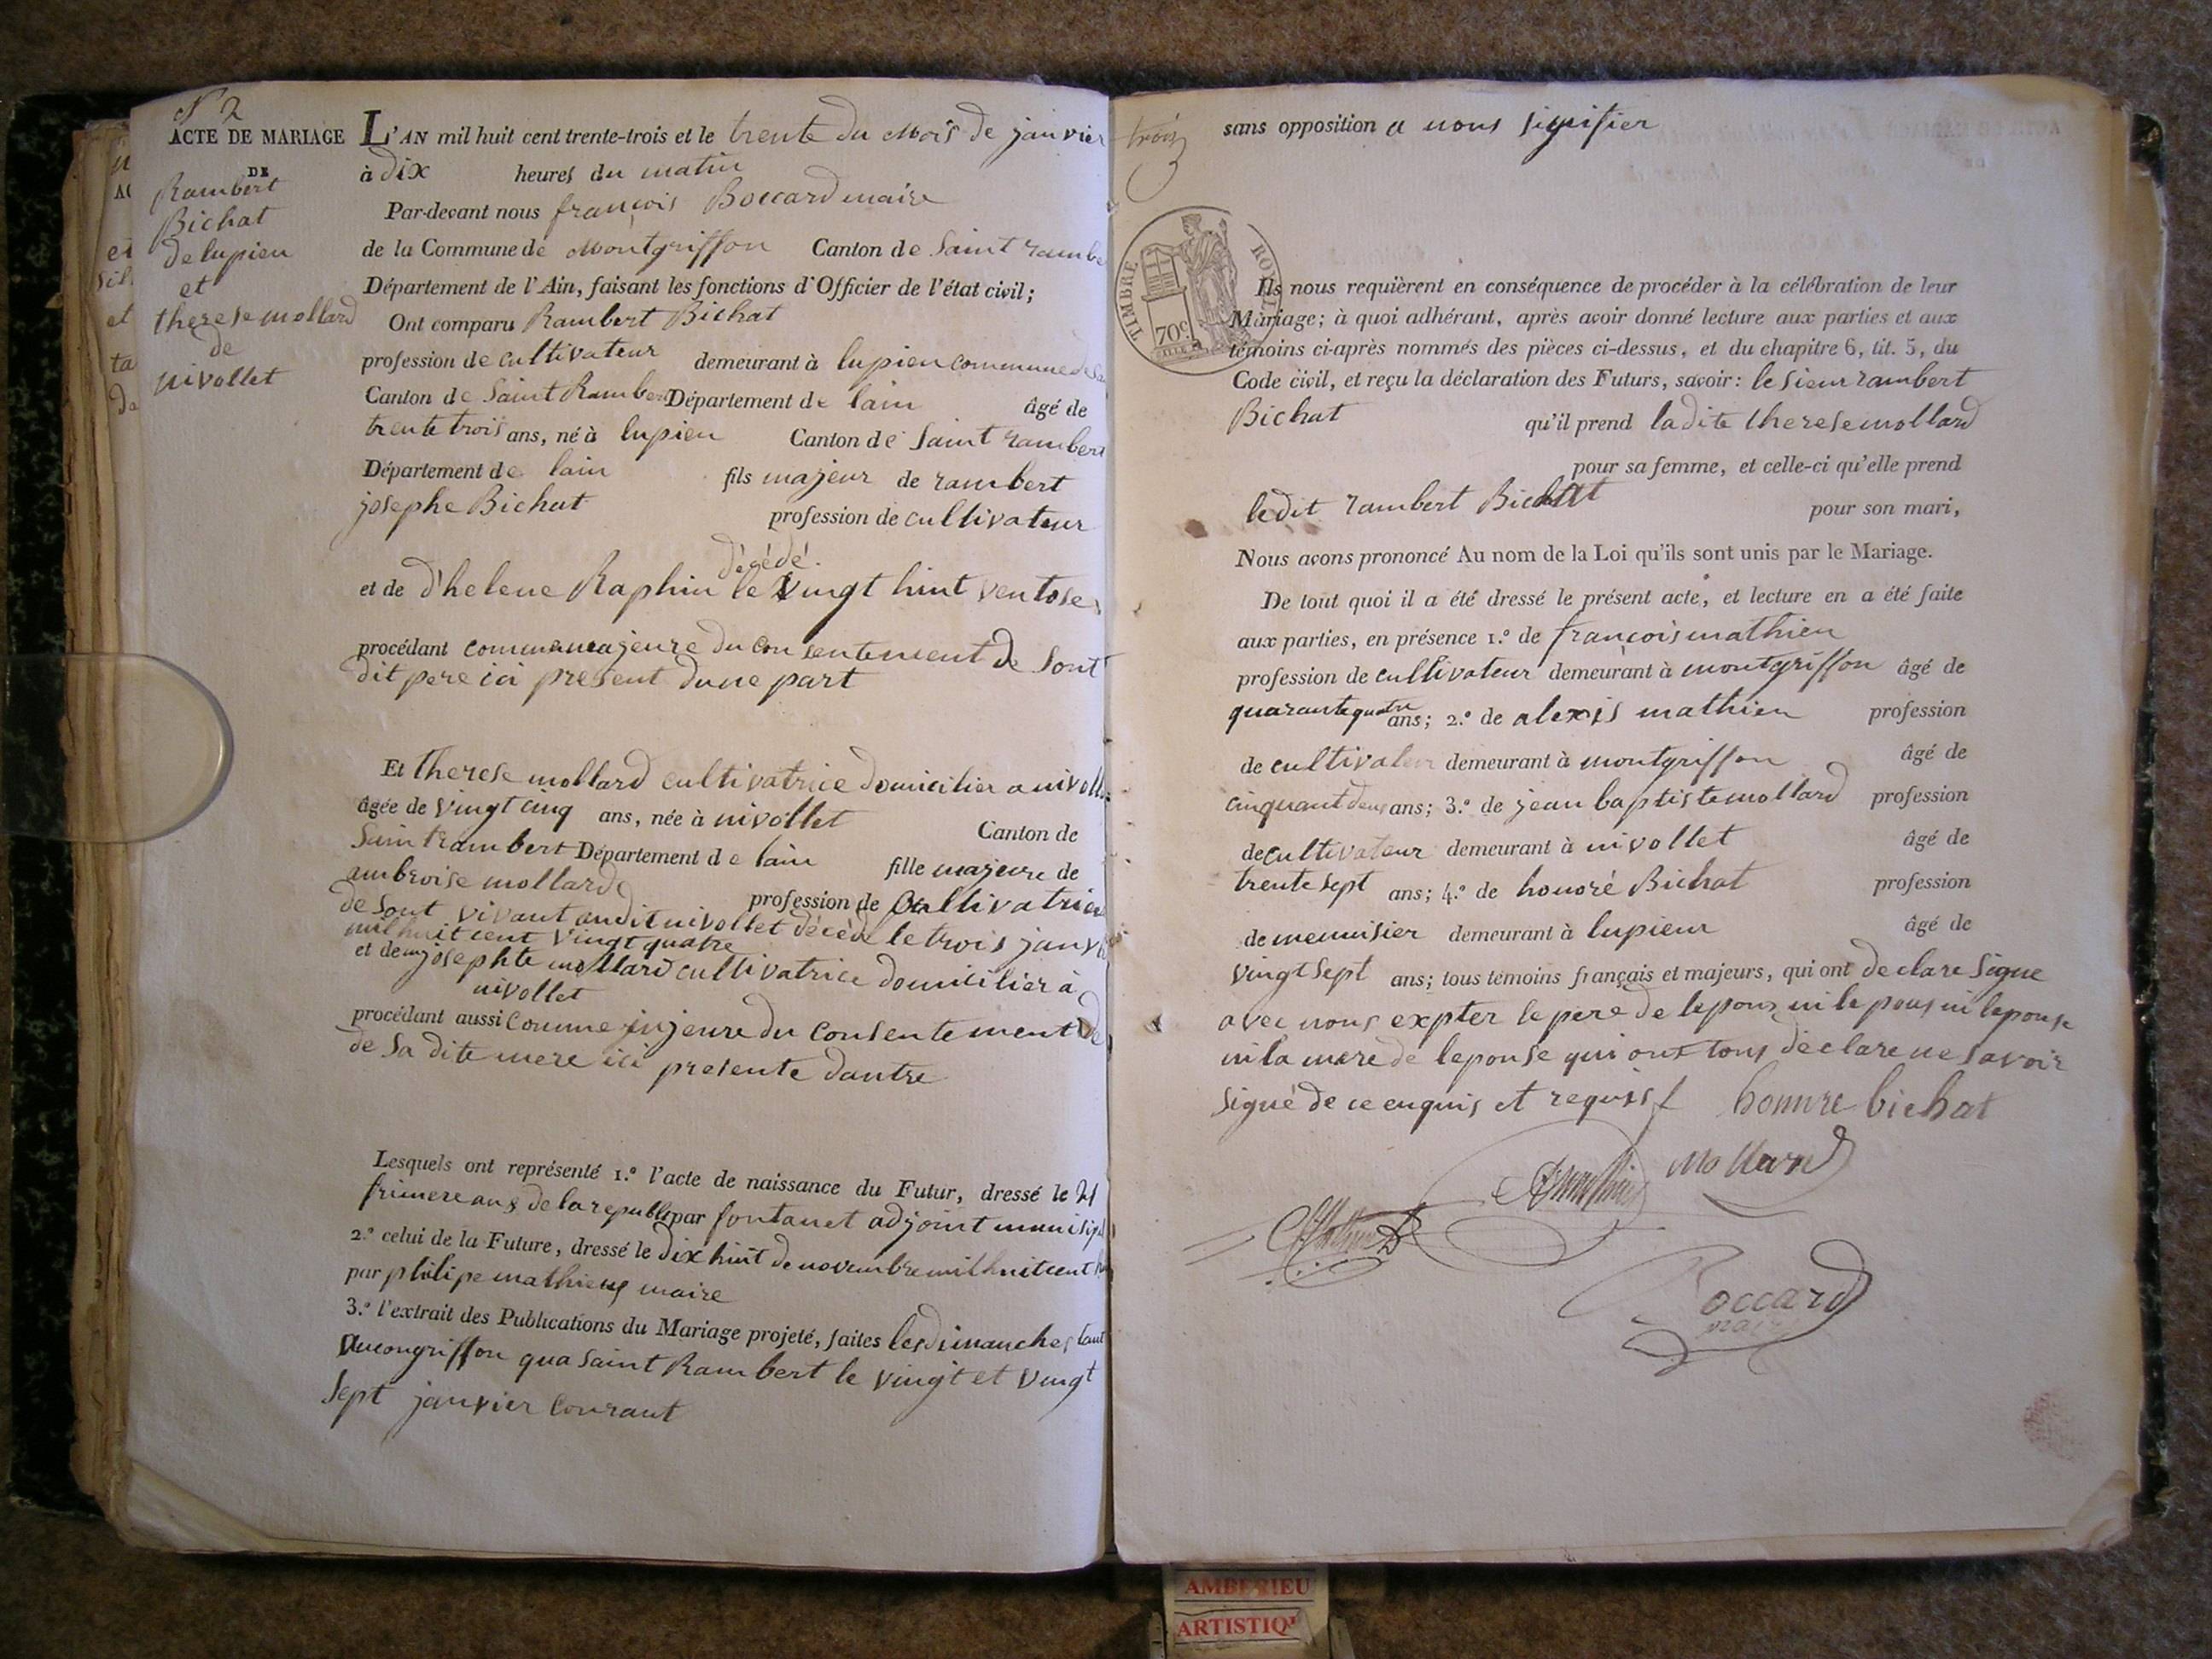 N° 2
ACTE DE MARIAGE
DE
Rambert
Bichat
de lupieu
et
therese mollard
de
nivollet
L'AN mil huit cent trente-trois et le trente du Mois de janvier
à dix heures du matin
Par-devant nous françois Boccard maire
de la Commune de Montgriffon Canton de Saint rambe
Département de l'Ain, faisant les fonctions d'Officier de l'état civil;
Ont comparu Rambert Bichat
profession de cultivateur demeurant à lupieu commune de Sa
Canton de Saint Rambert Département de lain âgé de
trente trois ans, né à lupieu Canton de Saint rambert
Département de lain fils majeur de rambert
josephe Bichat profession de cultivateur
décédé
et de d'helene Raphin le vingt huit ventose
procédant comme majeure du consentement de Sont
dit pere ici present dune part
Et therese mollard cultivatrice domicilier a nivoll
âgée de vingt cinq ans, née à nivollet Canton de
Saint rambert Département de lain fille majeure de
ambroise mollard profession de cultivatrice
de Sont vivant audit nivollet décédé le trois janv
mil huit cent vingt quatre
et de josephte mollard cultivatrice domicilier à
nivollet
procédant aussi comme majeure du consentement de
de Sa dite mere ici presente dautre
Lesquels ont représenté 1.° l'acte de naissance du Futur, dressé le 21
frimere an 8 de la republi par fontanet adjoint munisipal
2.° celui de la Future, dressé le dix huit de novembre mil huit cent
par philipe mathieu maire
3.° l'extrait des Publications du Mariage projeté, faites les dimanches tant
Amongriffon qua Saint Rambert le vingt et vingt
Sept janvier Courant
trois
sans opposition a nous signifier
TIMBRE ROYAL
70 c.
Ils nous requièrent en conséquence de procéder à la célébration de leur
Mariage; à quoi adhérant, après avoir donné lecture aux parties et aux
témoins ci-après nommés des pièces ci-dessus, et du chapitre 6, tit. 5, du
Code civil, et reçu la déclaration des Futurs, savoir: le Sieur rambert
Bichat qu'il prend ladite therese mollard
pour sa femme, et celle-ci qu'elle prend
ledit rambert Bichat pour son mari,
Nous avons prononcé Au nom de la Loi qu'ils sont unis par le Mariage.
De tout quoi il a été dressé le présent acte, et lecture en a été faite
aux parties, en présence 1.° de françois mathieu
profession de cultivateur demeurant à montgriffon âgé de
quarante quatre ans; 2.° de alexis mathieu profession
de cultivateur demeurant à montgriffon âgé de
cinquant deux ans; 3.° de jean baptiste mollard profession
de cultivateur demeurant à nivollet âgé de
trente sept ans; 4.° de honoré Bichat profession
de menuisier demeurant à lupieu âgé de
vingt Sept ans; tous témoins français et majeurs, qui ont declare Signe
avec nous expter le pere de lepoux ni le poux ni lepouse
ni la mere de lepouse qui ont tous déclare ne Savoir
Signé de ce enquis et requis honnre bichat
mollard
Boccard
maire
AMBERIEU
ARTISTIQU